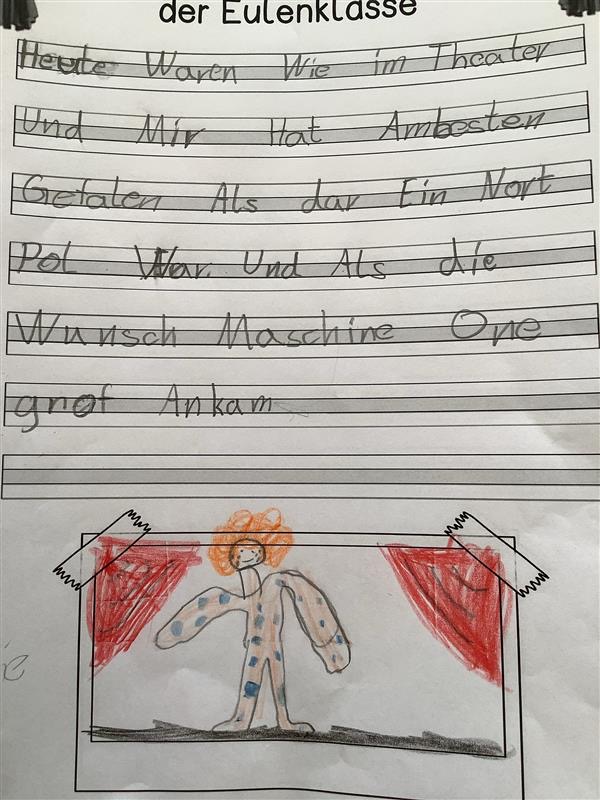 der Eulenklasse
Heute Waren Wie im Theater
Und Mir Hat Ambesten
Gefalen Als dar Ein Nort
Pol War Und Als die
Wunsch Maschine One
gnof Ankam